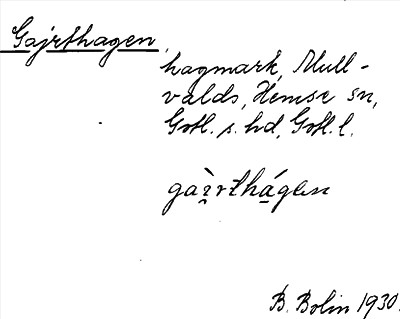 Gajrthagen,
hagmark, Mull-
valds, Hemse sn,
Gotl. s. hd, Gotl. l.
gàı̯rthágen
B. Bolin 1930.